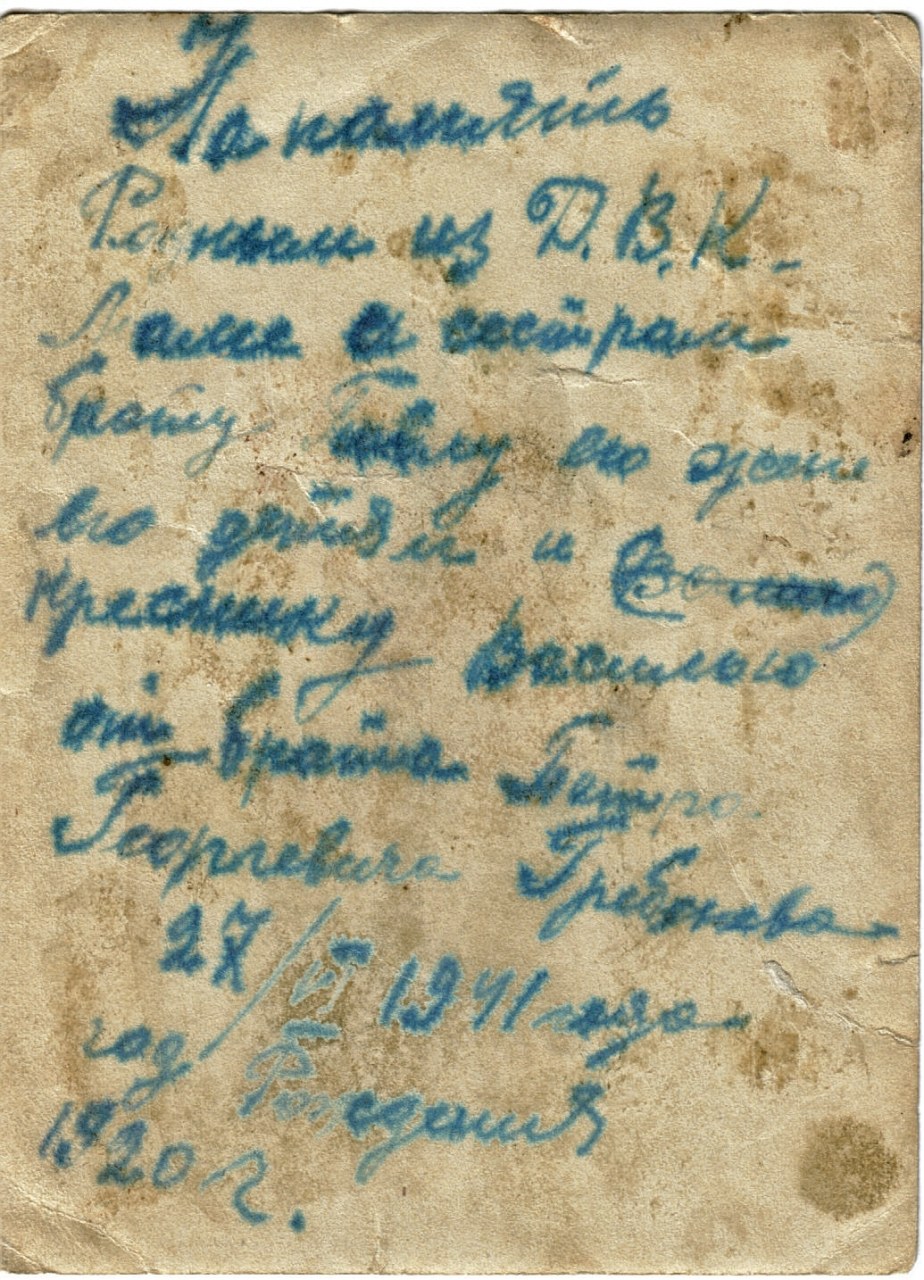 На память
Родным из Д.В.К.
Маме и сестрам
брату Павлу его жене
его детям и
крестнику Василью
от брата Петра
Георгевича Гребенева
27/VI 1941 года
год Рождения
1920 г.